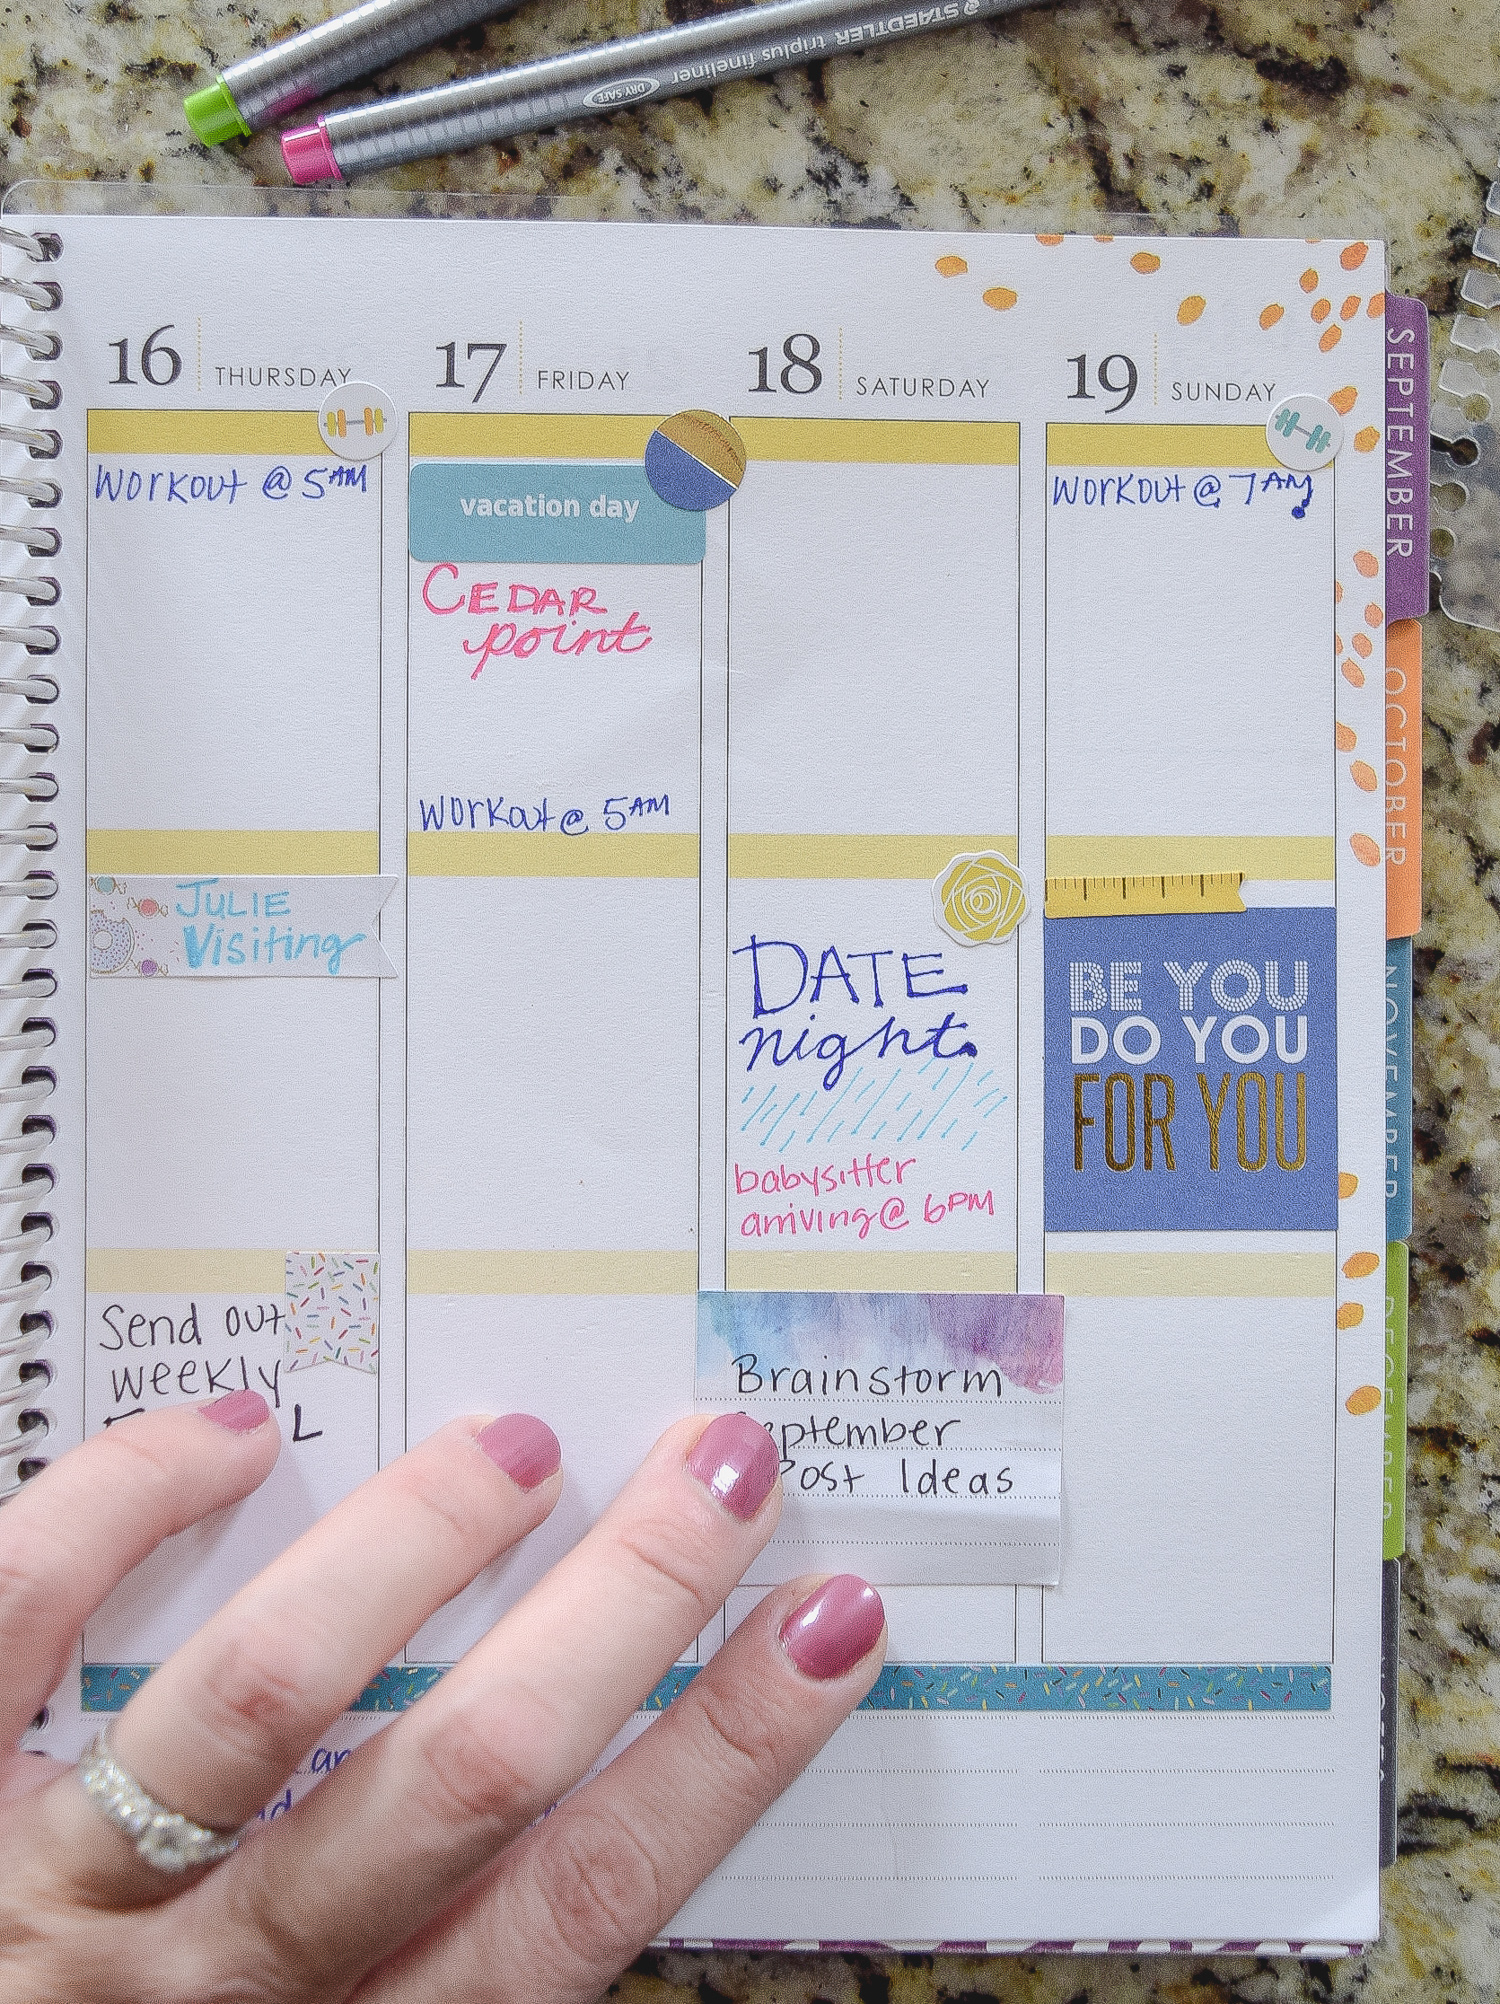 STAEDTLER triplus fineliner
DRY SAFE
16 THURSDAY
Workout @ 5AM
JULIE
Visiting
Send out
weekly
17 FRIDAY
vacation day
CEDAR
point
Workout @ 5AM
18 SATURDAY
DATE
night
babysitter
arriving @ 6PM
Brainstorm
September
Post Ideas
19 SUNDAY
Workout @ 7AM
BE YOU
DO YOU
FOR YOU
SEPTEMBER
OCTOBER
NOVEMBER
DECEMBER